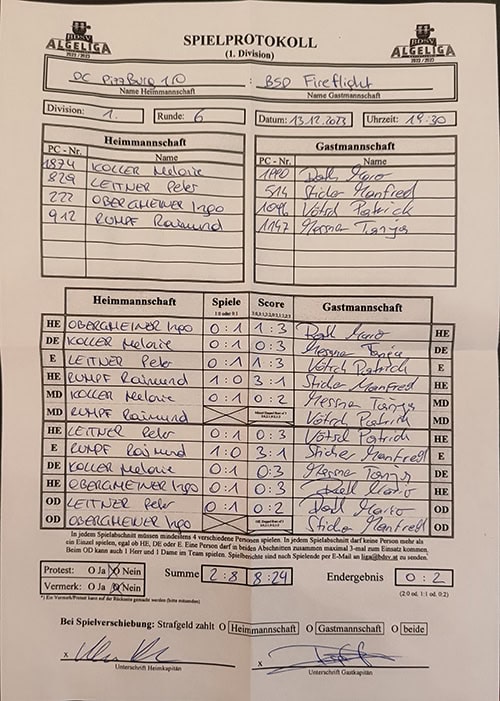 BDSV
ALGELIGA
2022 / 2023
SPIELPROTOKOLL
(1. Division)
BDSV
ALGELIGA
2022 / 2023
DC Pizzburg 1/0 : BSD Fireflight
Name Heimmannschaft Name Gastmannschaft
Division: 1. Runde: 6 Datum: 13.12.2023 Uhrzeit: 19.30
Heimmannschaft Gastmannschaft
PC - Nr. Name PC - Nr. Name
1874 KOLLER Melanie Mario
829 LEITNER Peter 514 Sticker Manfred
222 OBERGMEINER Ingo 1096 Vötsch Patrick
912 RUMPF Raimund 1147 Messner Tanja
Heimmannschaft Spiele Score Gastmannschaft
1:0 oder 0:1
HE OBERGMEINER Ingo 0:1 1:3 Mario HE
DE KOLLER Melanie 0:1 0:3 Messner Tanja DE
E LEITNER Peter 0:1 1:3 Vötsch Patrick E
HE RUMPF Raimund 1:0 3:1 Sticker Manfred HE
MD KOLLER Melanie 0:1 0:2 Messner Tanja MD
MD RUMPF Raimund Vötsch Patrick MD
HE LEITNER Peter 0:1 0:3 Vötsch Patrick HE
E RUMPF Raimund 1:0 3:1 Sticker Manfred E
DE KOLLER Melanie 0:1 0:3 Messner Tanja DE
HE OBERGMEINER Ingo 0:1 0:3 Mario HE
OD LEITNER Peter 0:1 0:2 Mario OD
OD OBERGMEINER Ingo Sticker Manfred OD
In jedem Spielabschnitt müssen mindestens 4 verschiedene Personen spielen. In jedem Spielabschnitt darf keine Person mehr als
ein Einzel spielen, egal ob HE, DE oder E. Eine Person darf in beiden Abschnitten zusammen maximal 3-mal zum Einsatz kommen.
Beim OD kann auch 1 Herr und 1 Dame im Team spielen. Spielberichte sind nach Spielende per E-Mail an liga@bdsv.at zu senden.
Protest: O Ja O Nein Summe 2:8 8:24 Endergebnis 0:2
Vermerk: O Ja O Nein (2:0 od. 1:1 od. 0:2)
*) Ein Vermerk/Protest kann auf der Rückseite gemacht werden (bitte ankreuzen)
Bei Spielverschiebung: Strafgeld zahlt O Heimmannschaft O Gastmannschaft O beide
x x
Unterschrift Heimkapitän Unterschrift Gastkapitän